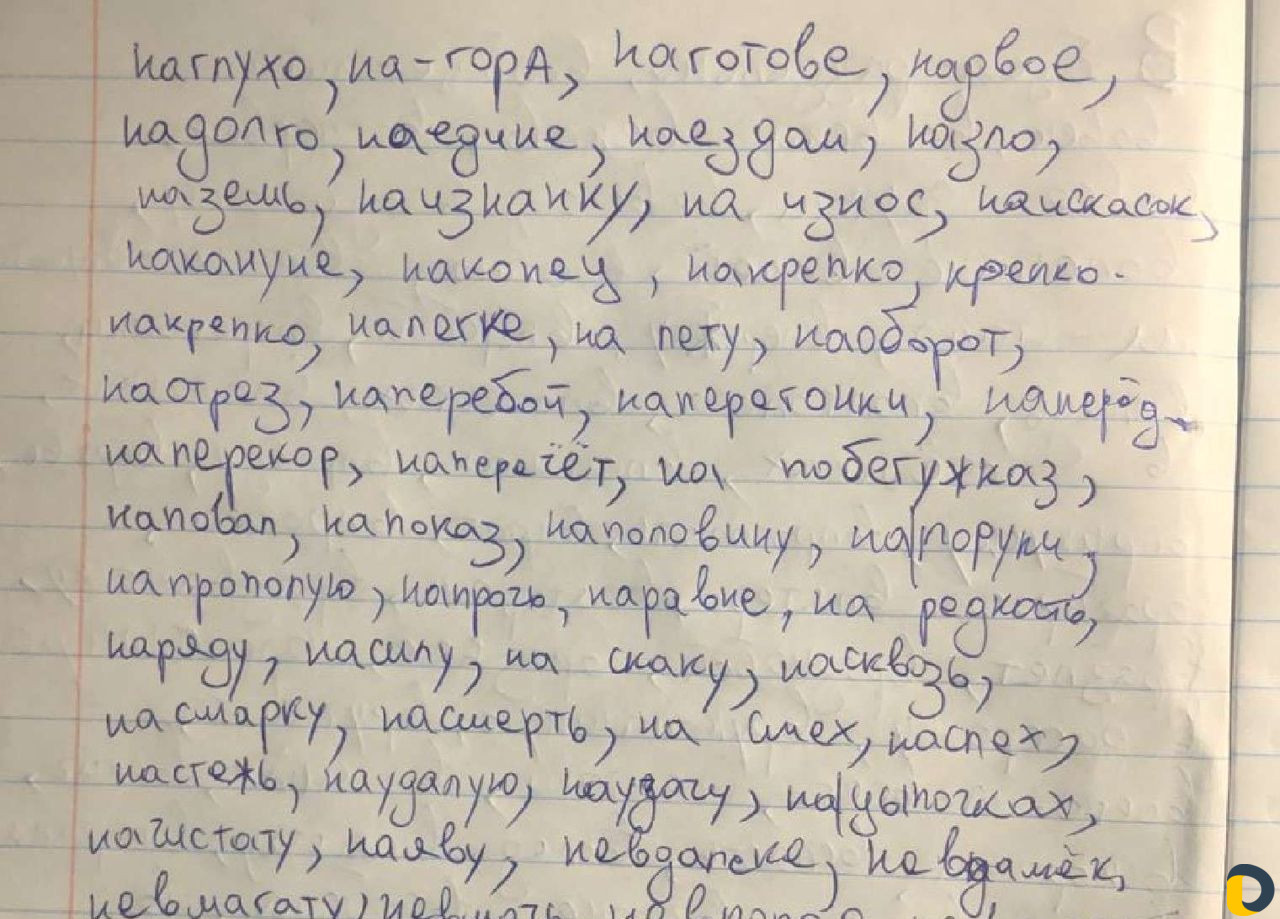 наглухо, на-горА, наготове, надвое,
надолго, наедине, наездом, назло,
наземь, наизнанку, на износ, наискасок,
накануне, наконец, накрепко, крепко-
накрепко, налегке, на лету, наоборот,
наотрез, наперебой, наперегонки, наперёд
наперекор, наперечёт, на побегужказ,
наповал, напоказ, наполовину, на|поруки,
напропалую, напрочь, наравне, на редкость,
наряду, насилу, на скаку, насквозь,
насмарку, насмерть, на смех, наспех,
настежь, наудалую, наудачу, на|цыпочках,
начистоту, наяву, невдалеке, невдамёк,
невмагату, невмочь, невпопад